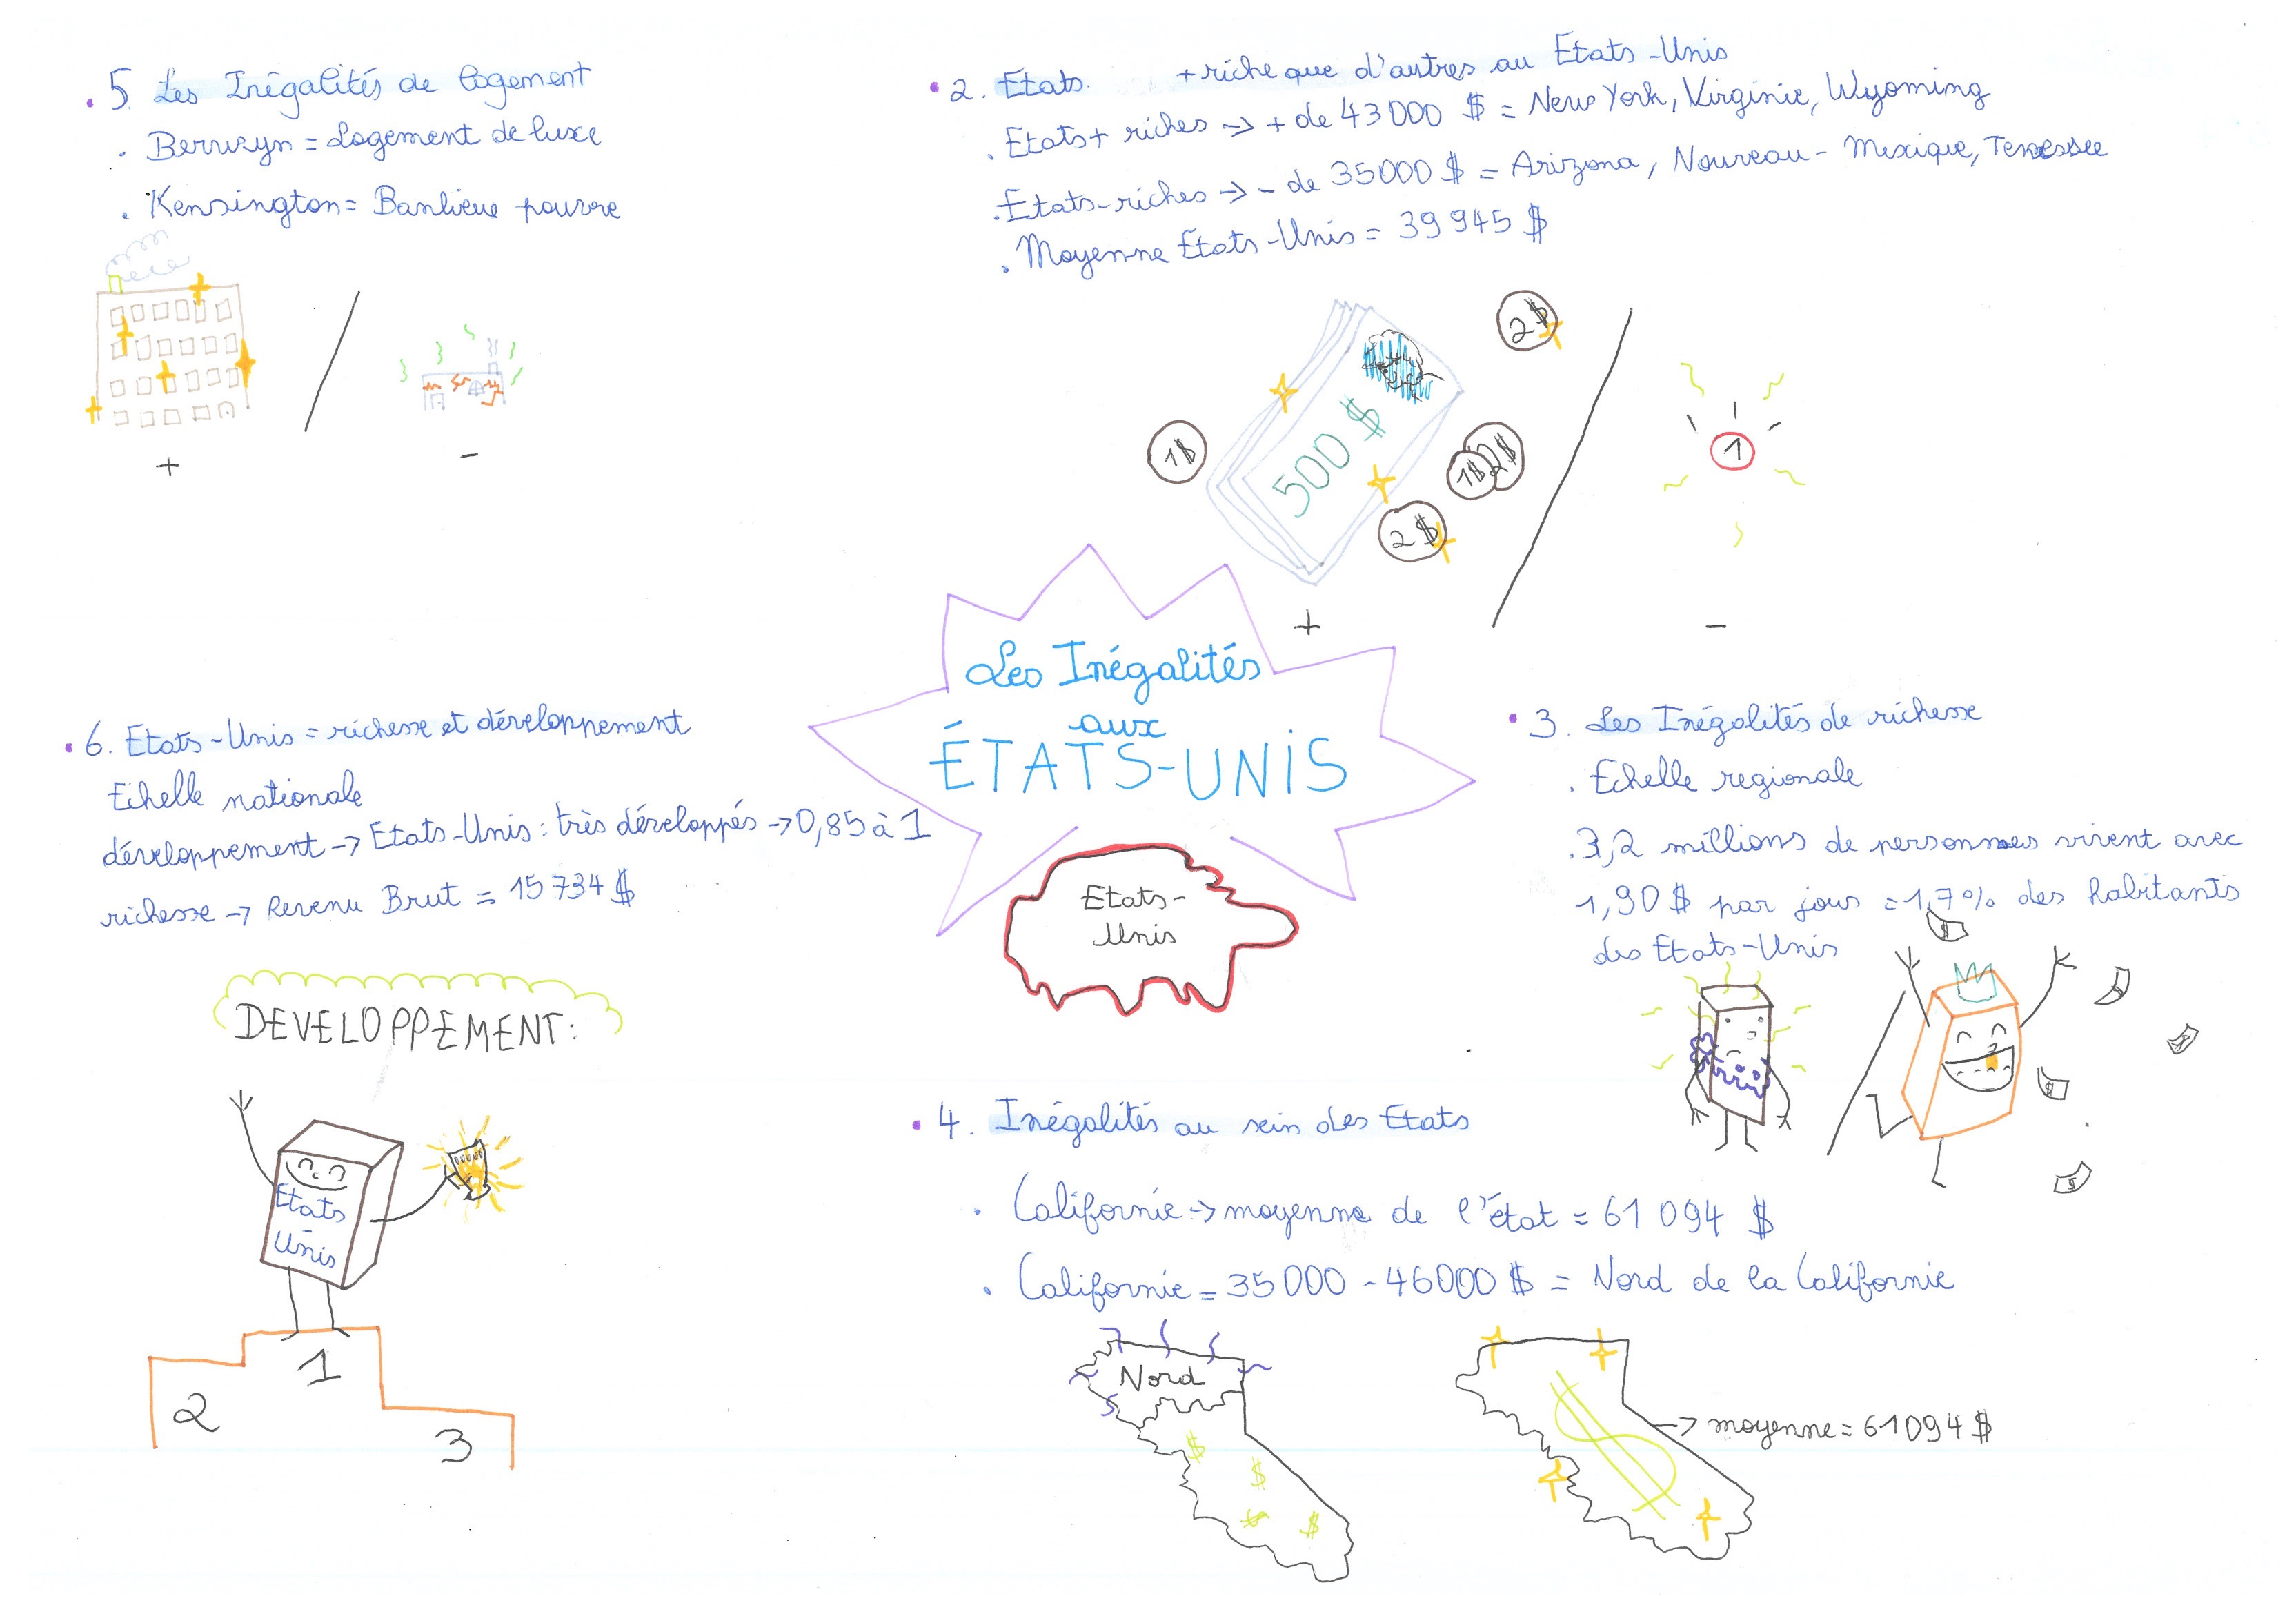 • 5. Les Inégalités de logement
. Berwyn = Logement de luxe
. Kensington = Banlieue pauvre
+
-
• 2. Etats + riche que d'autres au Etats-Unis
. Etats + riches → + de 43 000 $ = New York, Virginie, Wyoming
. Etats - riches → - de 35 000 $ = Arizona, Nouveau-Mexique, Tennessee
. Moyenne Etats-Unis = 39 945 $
2$
1$
500 $
1$ 2$
2$
1
+
-
Les Inégalités
aux
ÉTATS-UNIS
Etats-
Unis
• 3. Les Inégalités de richesse
. Echelle regionale
. 3,2 millions de personnes vivent avec
1,90 $ par jours = 1,7 % des habitants
des Etats-Unis
• 4. Inégalités au sein des Etats
. Californie → moyenne de l'état = 61 094 $
. Californie = 35 000 - 46 000 $ = Nord de la Californie
Nord
$
$
$ $
→ moyenne = 61 094 $
• 6. Etats-Unis = richesse et développement
Echelle nationale
développement → Etats-Unis : très développés → 0,85 à 1
richesse → Revenu Brut = 15 734 $
DEVELOPPEMENT :
Etats
-
Unis
1
2
3